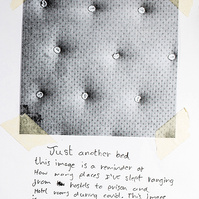 Just another bed
this image is a reminder of
How many places I've slept ranging
from hostels to prison and
Hotel rooms during covid. This image